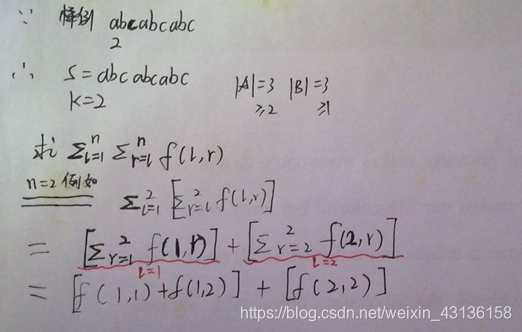 ∵ 样例 abcabcabc
2
∴ S=abcabcabc |A|=3 |B|=3
K=2 ≥2 ≥1
求 Σ_{l=1}^{n} Σ_{r=l}^{n} f(l,r)
n=2例如 Σ_{l=1}^{2} [Σ_{r=l}^{2} f(l,r)]
= [Σ_{r=1}^{2} f(1,r)] + [Σ_{r=2}^{2} f(2,r)]
l=1 l=2
= [f(1,1)+f(1,2)] + [f(2,2)]
https://blog.csdn.net/weixin_43136158